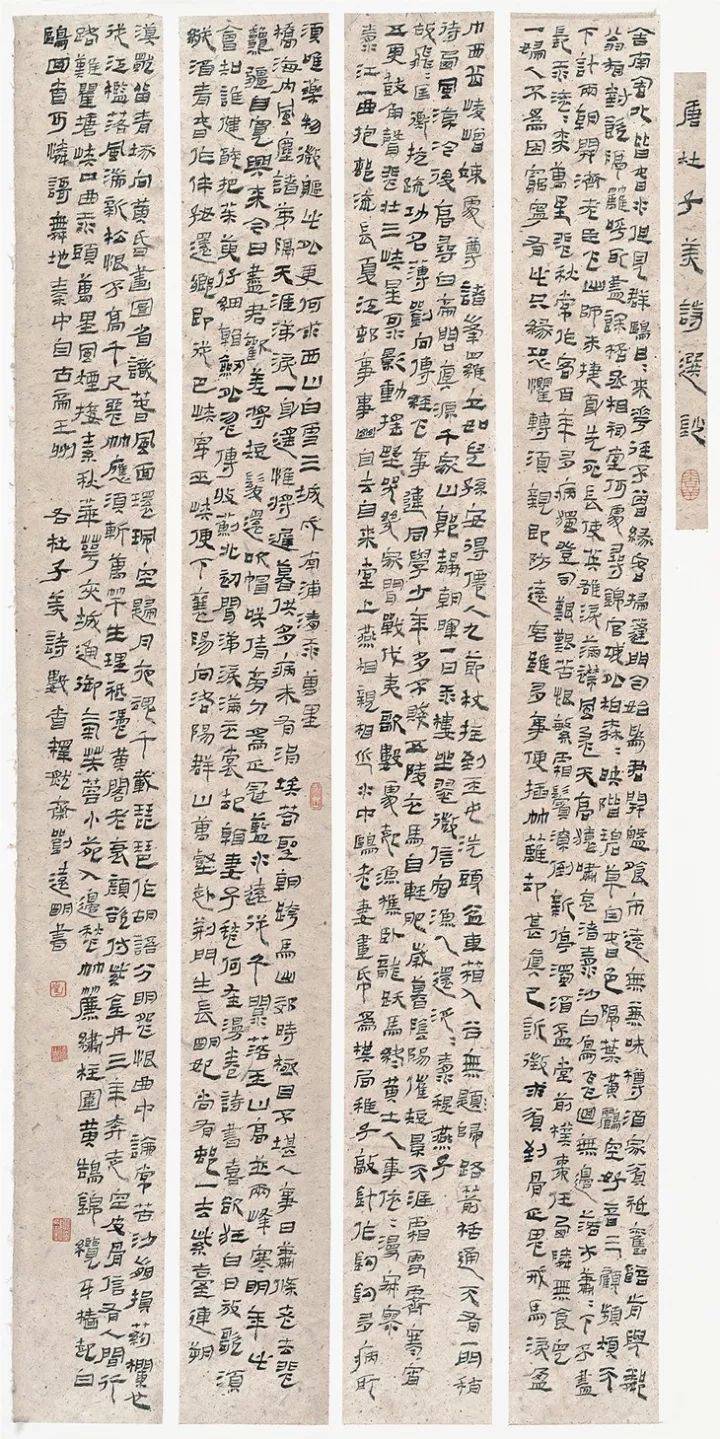 唐杜子美詩選鈔
舍南舍北皆春水但見群鷗日日來花徑不曾緣客掃蓬門今始為君開盤飧市遠無兼味樽酒家貧祇舊醅肯與鄰
翁相對飲隔籬呼取盡餘杯丞相祠堂何處尋錦官城外柏森森映階碧草自春色隔葉黃鸝空好音三顧頻煩天
下計兩朝開濟老臣心出師未捷身先死長使英雄淚滿襟風急天高猿嘯哀渚清沙白鳥飛迴無邊落木蕭蕭下不盡
長江滾滾來萬里悲秋常作客百年多病獨登臺艱難苦恨繁霜鬢潦倒新停濁酒杯堂前撲棗任西鄰無食無兒
一婦人不為困窮寧有此只緣恐懼轉須親即防遠客雖多事便插疏籬卻甚真已訴徵求貧到骨正思戎馬淚盈
巾西岳崚嶒竦處尊諸峯羅立如兒孫安得僊人九節杖拄到玉女洗頭盆車箱入谷無歸路箭栝通天有一門稍
待西風涼冷後高尋白帝問真源千家山郭靜朝暉一日江樓坐翠微信宿漁人還泛泛清秋燕子
故飛飛匡衡抗疏功名薄劉向傳經心事違同學少年多不賤五陵衣馬自輕肥歲暮陰陽催短景天涯霜雪霽寒宵
五更鼓角聲悲壯三峽星河影動搖野哭幾家聞戰伐夷歌數處起漁樵臥龍躍馬終黃土人事依依漫寂寥
清江一曲抱村流長夏江村事事幽自去自來堂上燕相親相近水中鷗老妻畫紙為棋局稚子敲針作釣鉤多病所
須唯藥物微軀此外更何求西山白雪三城戍南浦清江萬里
橋海內風塵諸弟隔天涯涕淚一身遙惟將遲暮供多病未有涓埃答聖朝跨馬出郊時極目不堪人事日蕭條老去悲
秋強自寬興來今日盡君歡羞將短髮還吹帽笑倩旁人為正冠藍水遠從千澗落玉山高並兩峰寒明年此
會知誰健醉把茱萸仔細看劍外忽傳收薊北初聞涕淚滿衣裳卻看妻子愁何在漫卷詩書喜欲狂白日放歌須
縱酒青春作伴好還鄉即從巴峽穿巫峽便下襄陽向洛陽群山萬壑赴荊門生長明妃尚有村一去紫臺連朔
漠獨留青塚向黃昏畫圖省識春風面環珮空歸月夜魂千載琵琶作胡語分明怨恨曲中論常苦沙崩損藥欄也
從江檻落風湍新松恨不高千尺惡竹應須斬萬竿生理祇憑黃閣老衰顏欲付紫金丹三年奔走空皮骨信有人間行
路難瞿塘峽口曲江頭萬里風煙接素秋花萼夾城通御氣芙蓉小苑入邊愁珠簾繡柱圍黃鵠錦纜牙檣起白
鷗回首可憐歌舞地秦中自古帝王州 右杜子美詩數首釋默齋劉遠明書